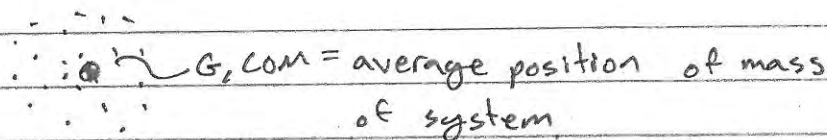 G, COM = average position of mass
of system